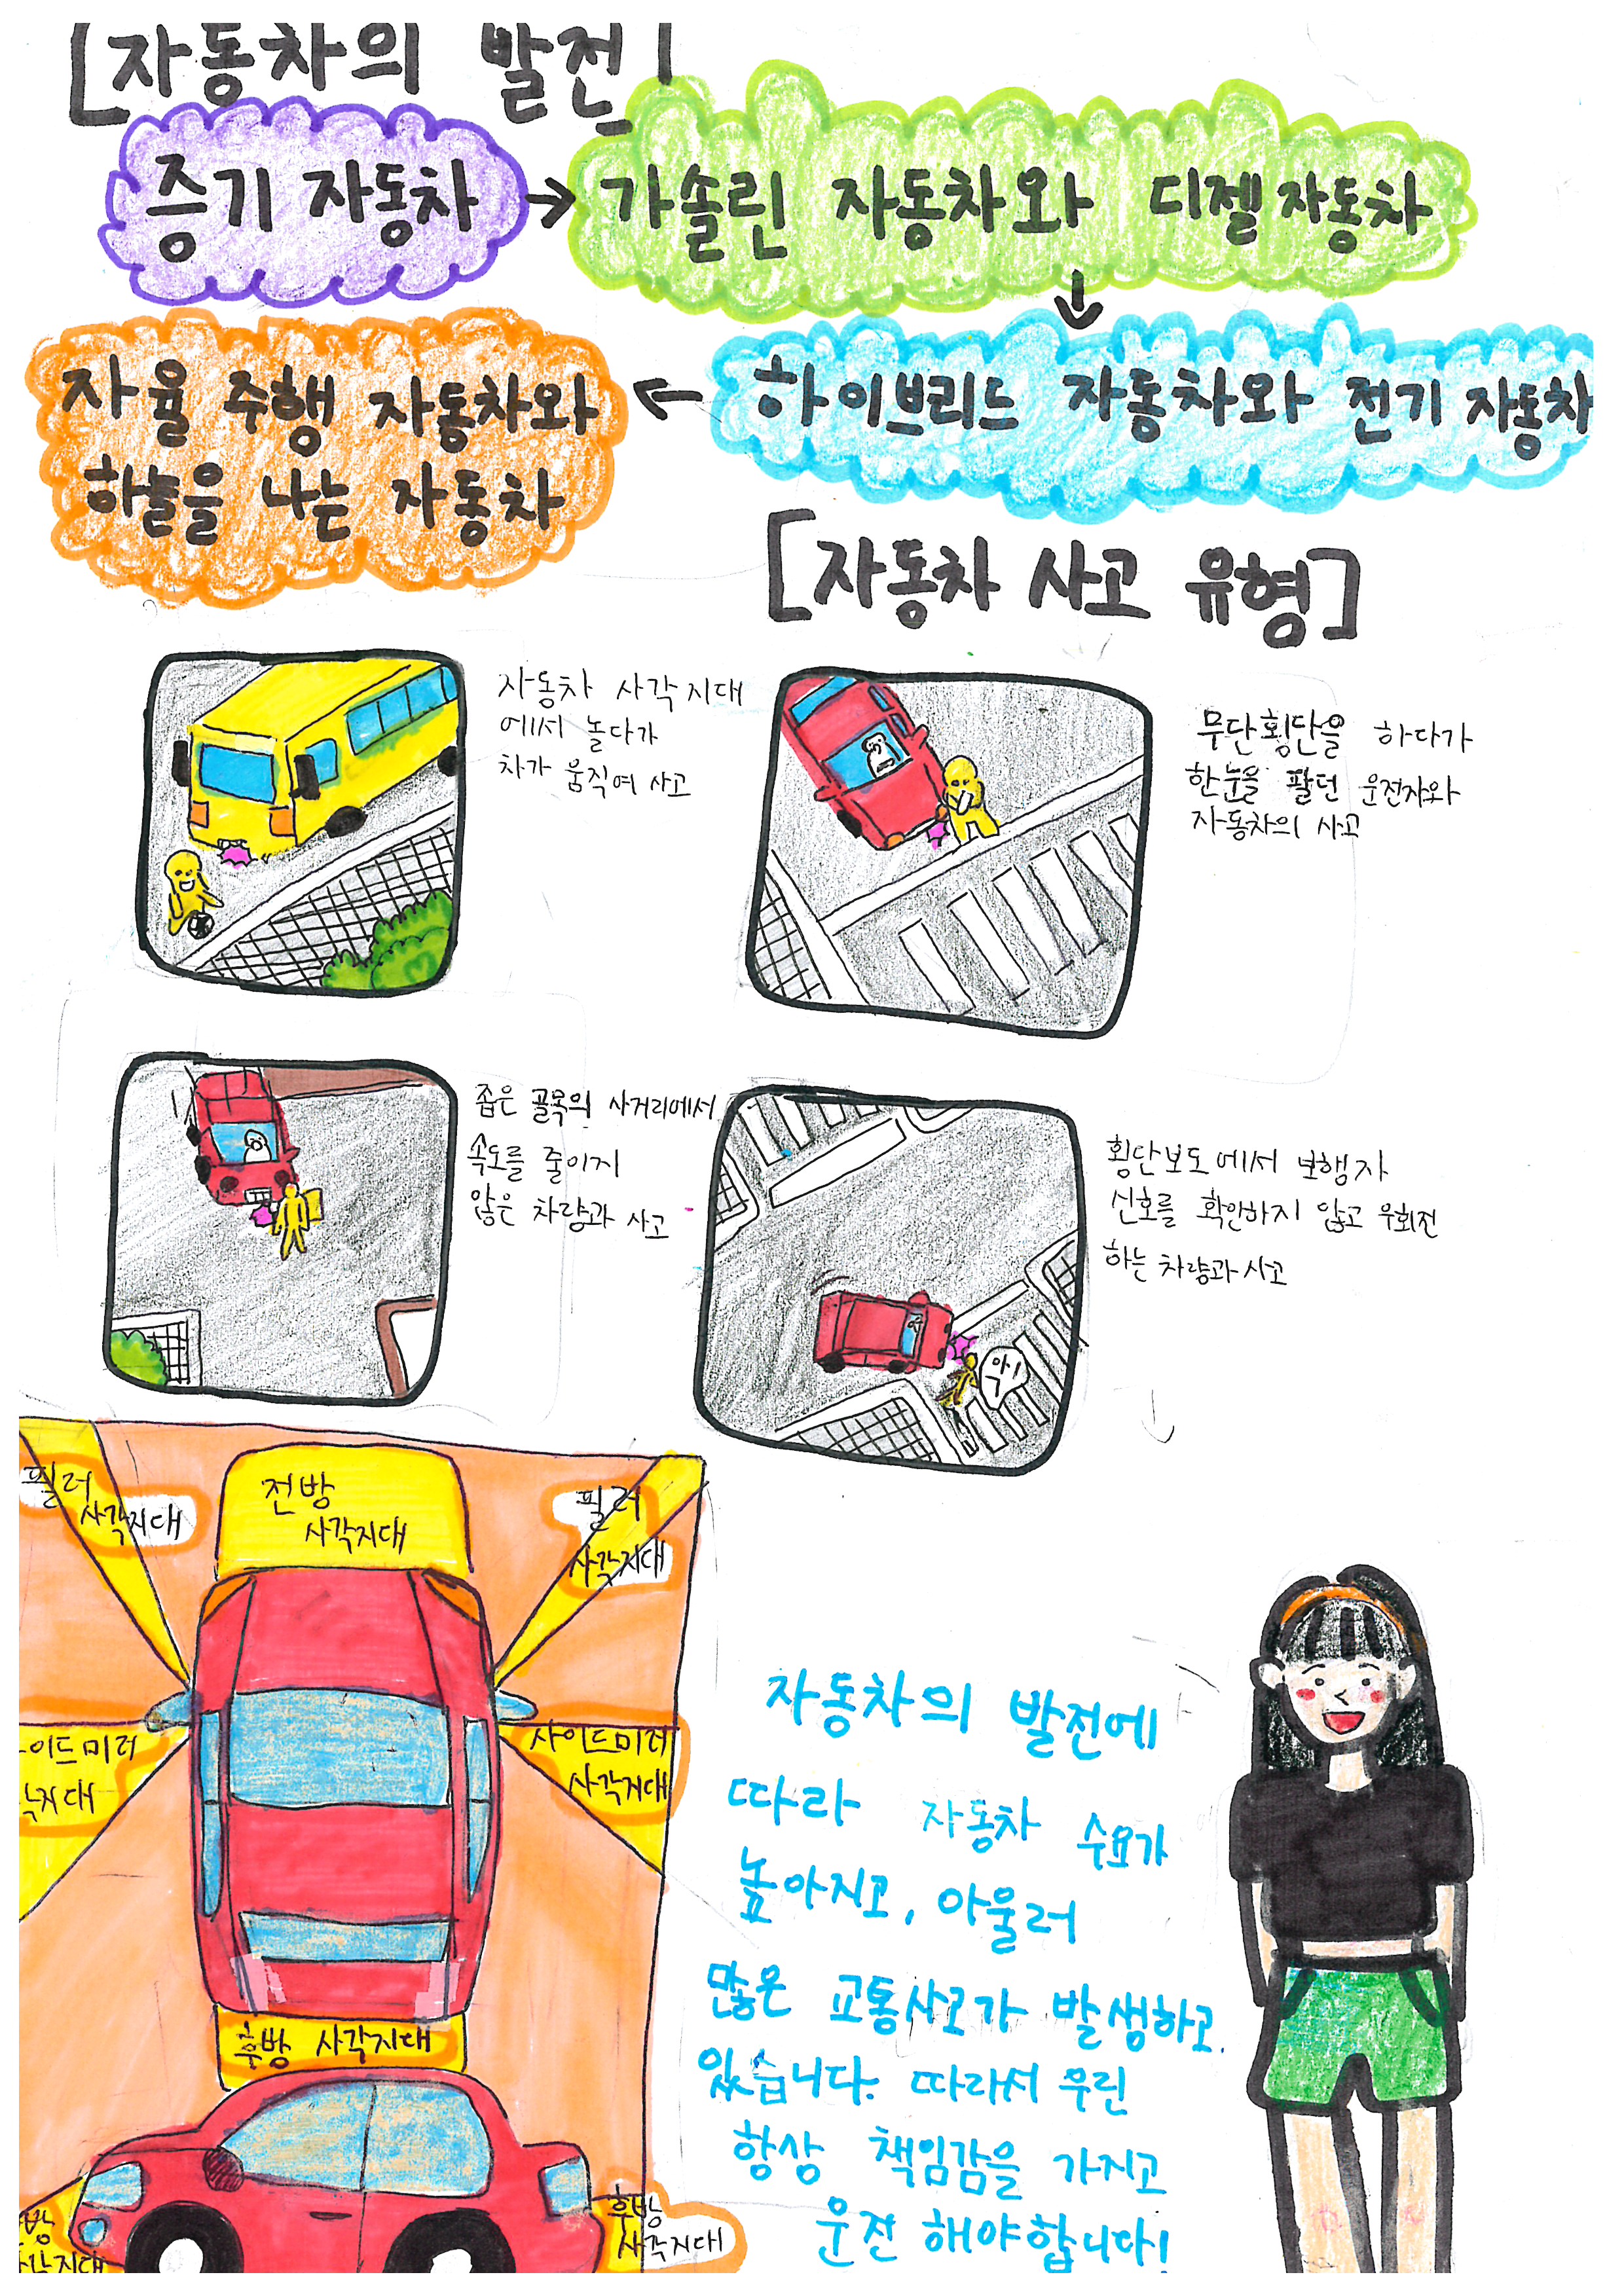 [자동차의 발전]
증기 자동차 → 가솔린 자동차와 디젤 자동차
↓
하이브리드 자동차와 전기 자동차
←
자율 주행 자동차와
하늘을 나는 자동차
[자동차 사고 유형]
자동차 사각지대
에서 놀다가
차가 움직여 사고
무단횡단을 하다가
한눈을 팔던 운전자와
자동차의 사고
좁은 골목의 사거리에서
속도를 줄이지
않은 차량과 사고
횡단보도에서 보행자
신호를 확인하지 않고 우회전
하는 차량과 사고
악!
필러
사각지대
전방
사각지대
필러
사각지대
이드미러
각지대
사이드미러
사각지대
후방 사각지대
방
사각지대
후방
사각지대
자동차의 발전에
따라 자동차 수요가
높아지고, 아울러
많은 교통사고가 발생하고
있습니다. 따라서 우린
항상 책임감을 가지고
운전 해야합니다!